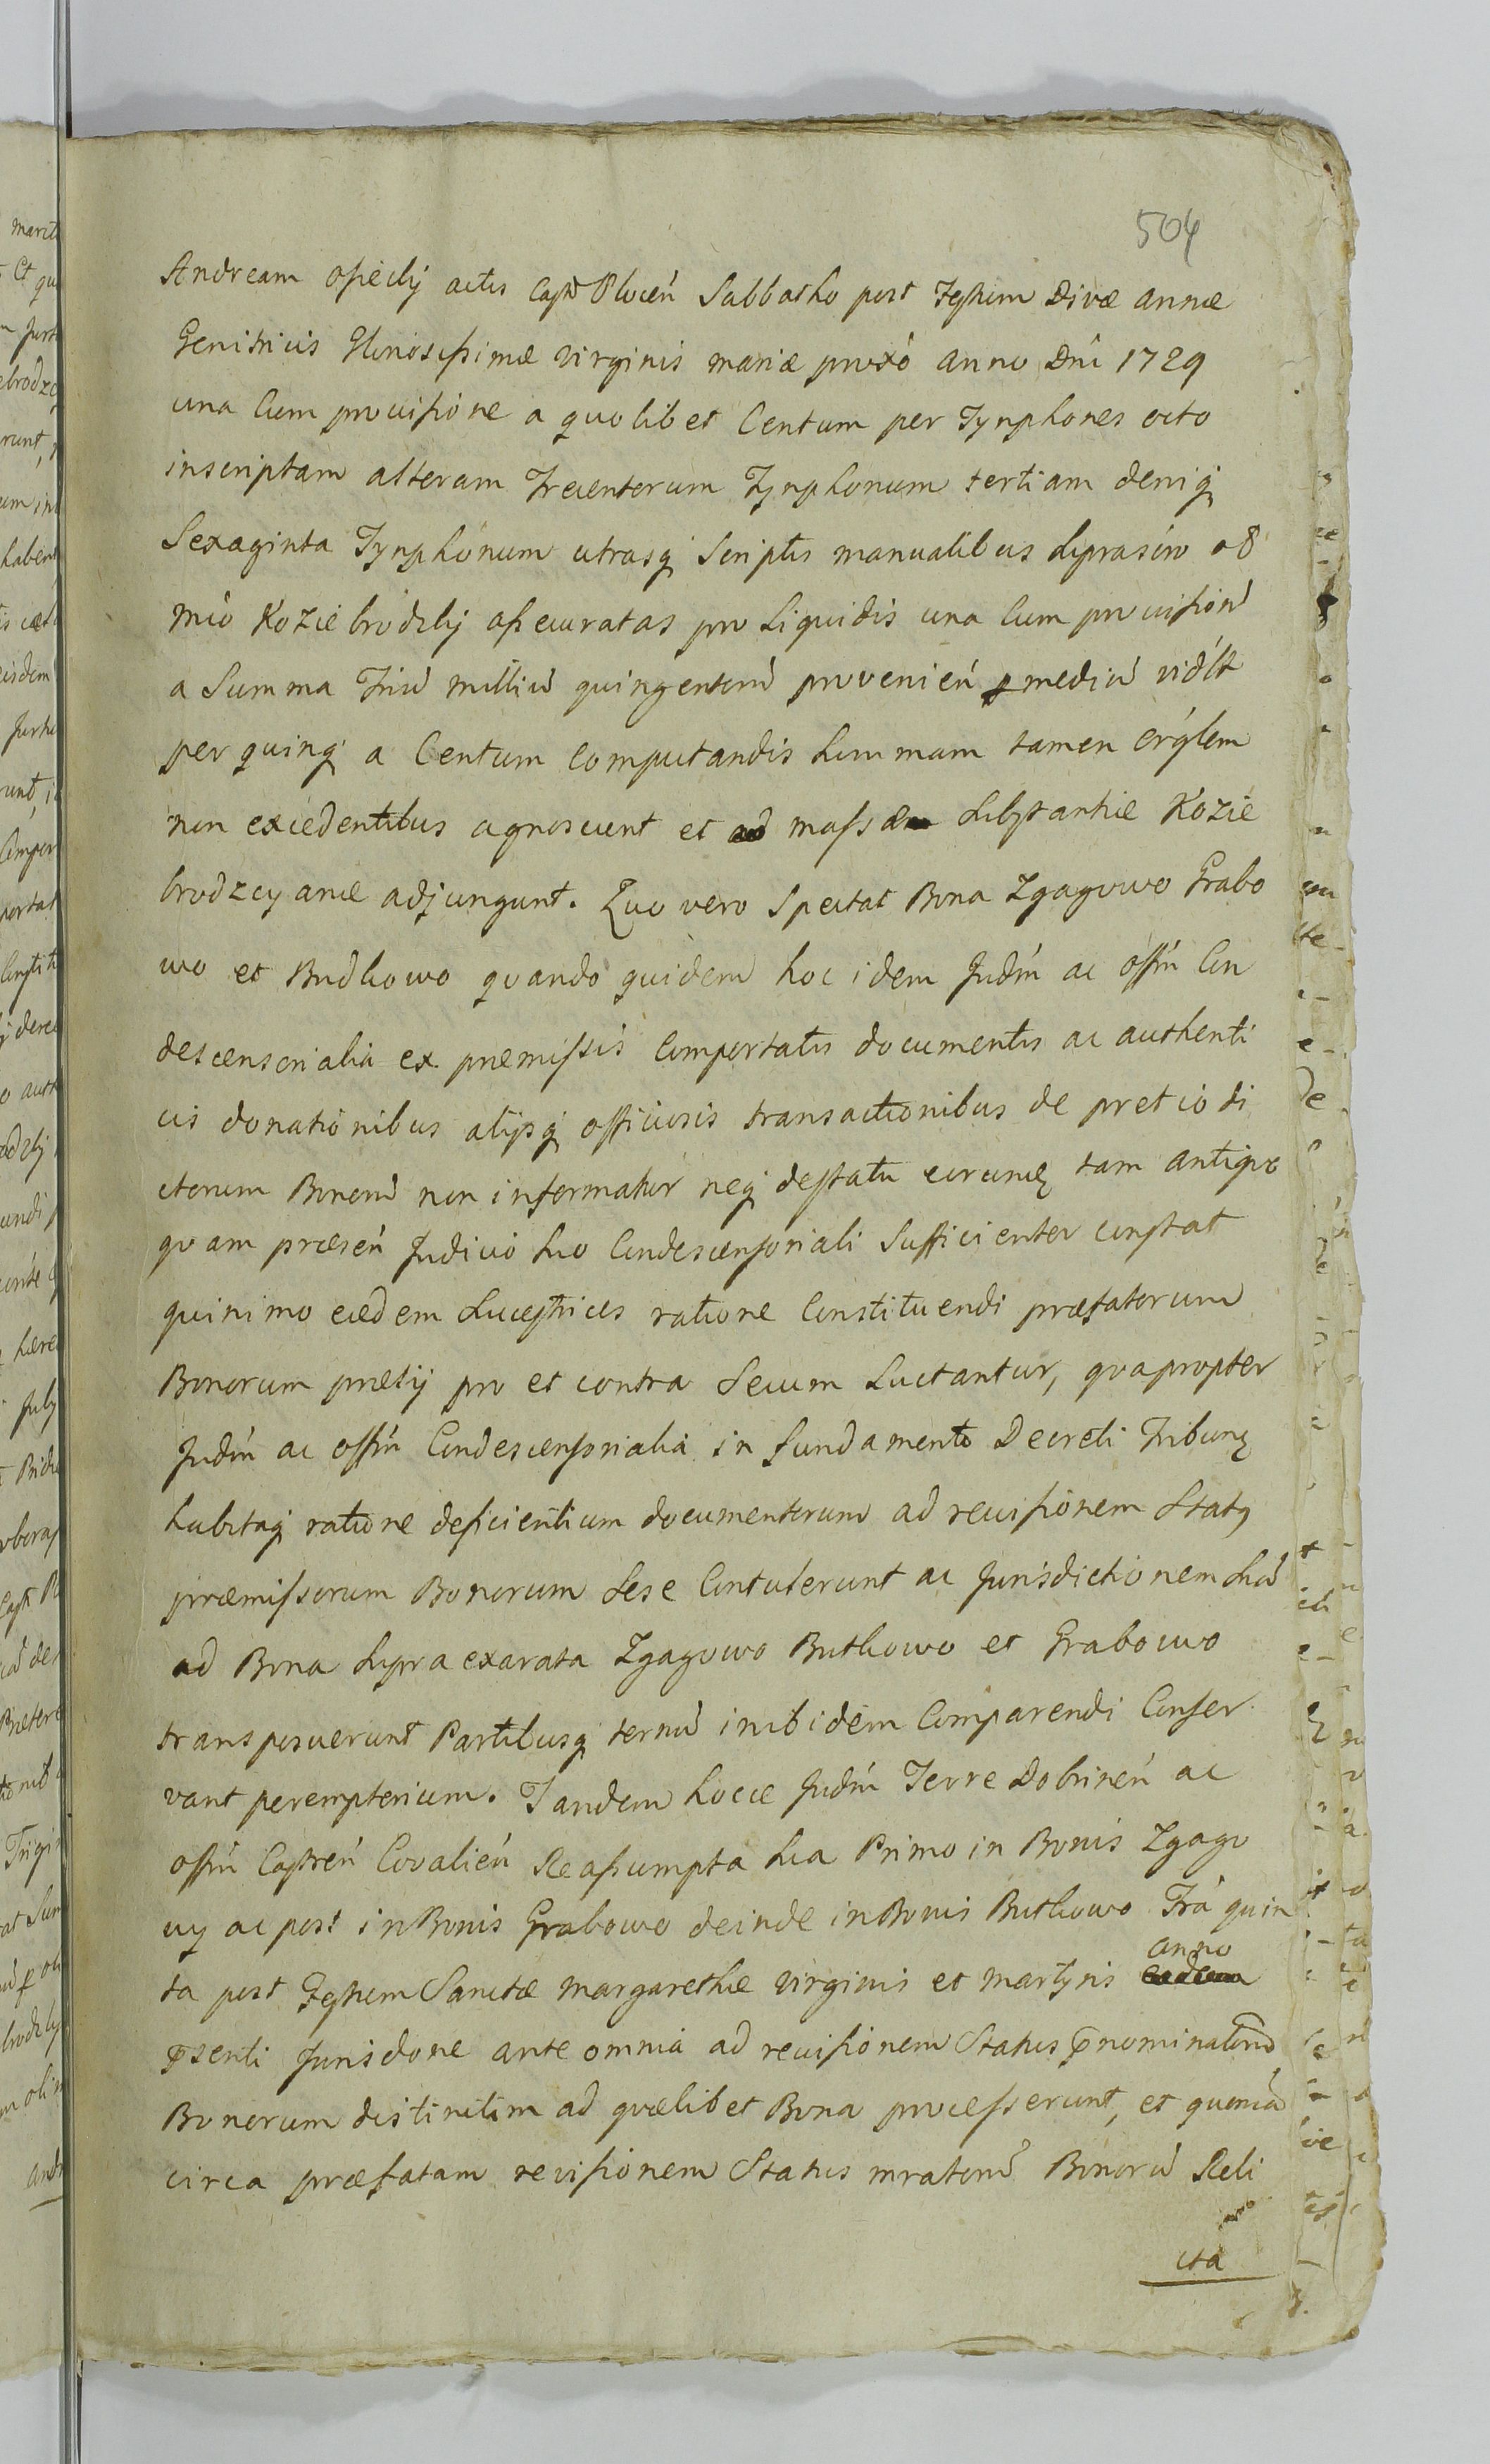 504
Andream Osiecky actis Castr Plocen̄ Sabbatho post Festum Divæ Annæ
Genitricis Gloriosissimæ Virginis Mariæ proxo anno Dni 1729
una Cum provisione a quolibet Centum per Tynphones octo
inscriptam alteram Trecentorum Tynphonum tertiam deniq
Sexaginta Tynphonum utrasq Scriptis manualibus suprascro ol
mco Koziebrodzky assecuratas pro Liquidis una Cum provision
a Summa Triu milliu quingentoru provenien ꝑ mediu vidlt
per quinq a Centum Computandis Summam tamen crglem
non excedentibus agnoscunt et massæ Substantiæ Kozie
brodzcyanæ adjungunt. Quo vero Spectat Bona Zgagowo Grabo
wo et Budkowo quando quidem hoc idem Judm ac offm Con
descensorialia ex præmissis Comportatis documentis ac authenti
cis donationibus alijsq officiosis transactionibus de pretio di
ctorum Bonoru non informatur neq de statu eorumq tam antiquo
quam præsen Judicio suo Condescensoriali Sufficienter constat
quinimo eædem Succestrices ratione Constituendi præfatorum
Bonorum prætij pro et contra Secum Luctantur, quapropter
Judm ac offm Condescensorialia in fundamento Decreti Tribun
habitaq ratione deficientium documentorum ad revisionem Statq
præmissorum Bonorum Sese Contulerunt ac Jurisdictionem Sua
ad Bona Supra exarata Zgagowo Butkowo et Grabowo
transposuerunt Partibusq ternu inibidem Comparendi Conser
vant peremptorium. Tandem hocce Judm Terre Dobrinen ac
offm Castren Covalien Reassumpta sua Primo in Bonis Zgago
wy ac post in Bonis Grabowo deinde in Bonis Butkowo Fra quin
ta post Festum Sanctæ Margarethæ Virginis et Martyris anno
p̄senti Jurisdone ante omnia ad revisionem Status p̄nominatoru
Bonorum distinctim ad quælibet Bona processerunt, et quonia
circa præfatam revisionem Status mratoru Bonoru Reli
cta